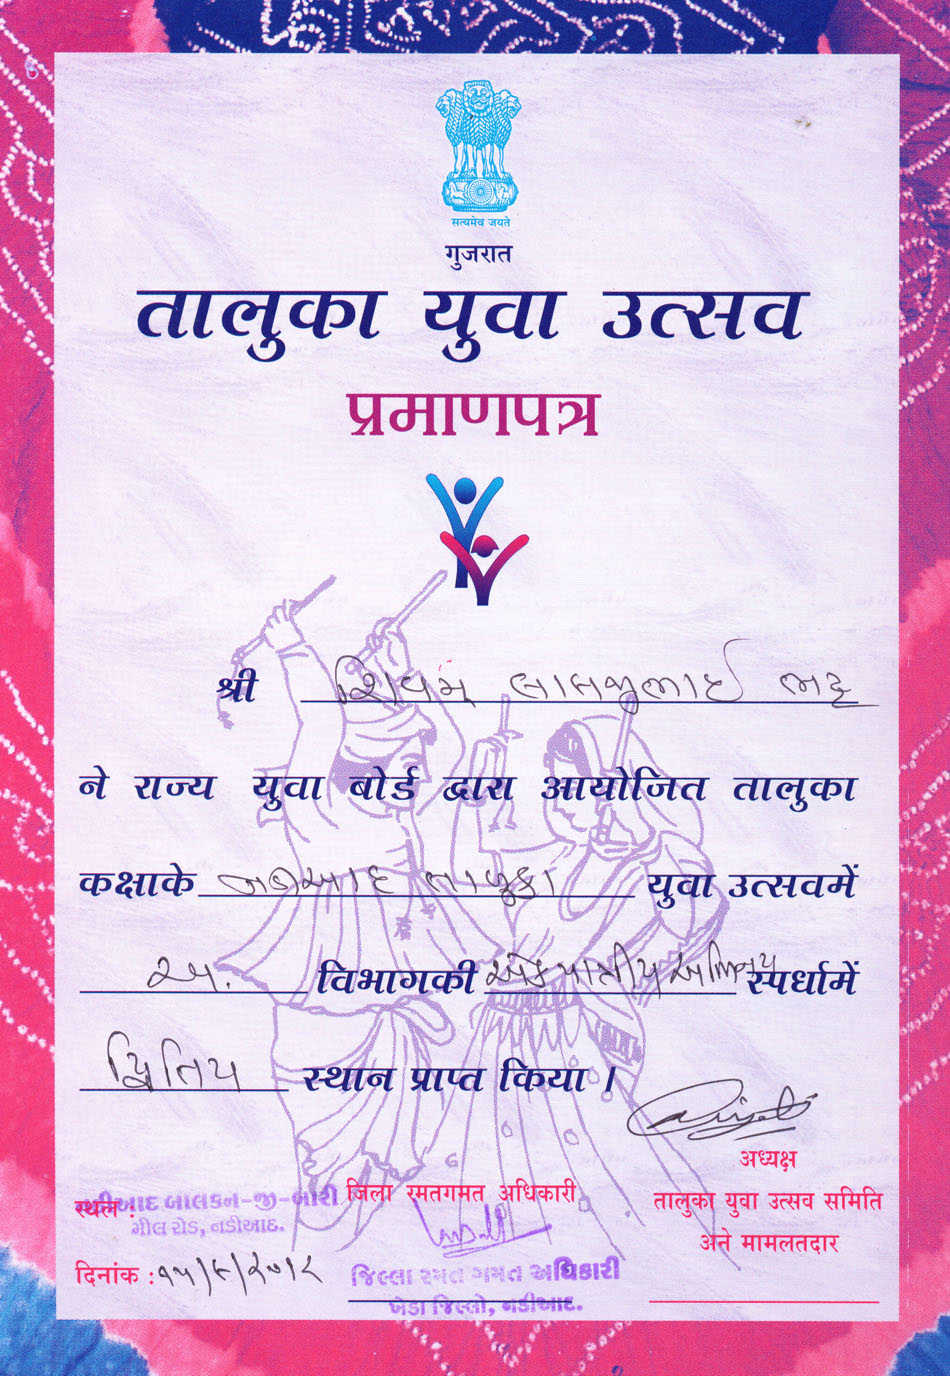 सत्यमेव जयते
गुजरात
तालुका युवा उत्सव
प्रमाणपत्र
श्री શિવમ લાલજીભાઈ ભટ્ટ
ने राज्य युवा बोर्ड द्वारा आयोजित तालुका
कक्षाके નડીઆદ તાલુકા युवा उत्सवमें
અ. विभागकी એકપાત્રીય અભિનય स्पर्धामें
દ્વિતિય स्थान प्राप्त किया ।
अध्यक्ष
तालुका युवा उत्सव समिति
अने मामलतदार
जिला रमतगमत अधिकारी
જિલ્લા રમત ગમત અધિકારી
ખેડા જિલ્લો, નડીઆદ.
स्थल : નડીઆદ બાલકન-જી-બારી
મીલ રોડ, નડીઆદ.
दिनांक : ૧૫/૯/૨૦૧૨